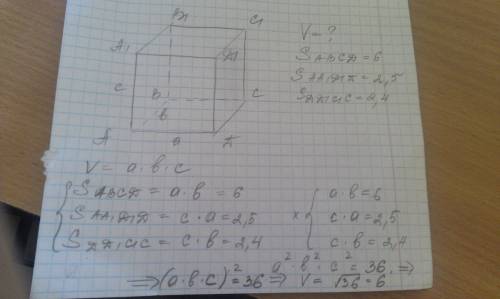 B1
C1
A1
D1
C
B
C
b
A
a
D
V = ?
S ABCD = 6
S AA1D1D = 2,5
S DD1C1C = 2,4
V = a · b · c
S ABCD = a · b = 6
S AA1D1D = c · a = 2,5
S DD1C1C = c · b = 2,4
× a · b = 6
c · a = 2,5
c · b = 2,4
a² · b² · c² = 36 ⇒
⇒ (a · b · c)² = 36 ⇒ V = √36 = 6